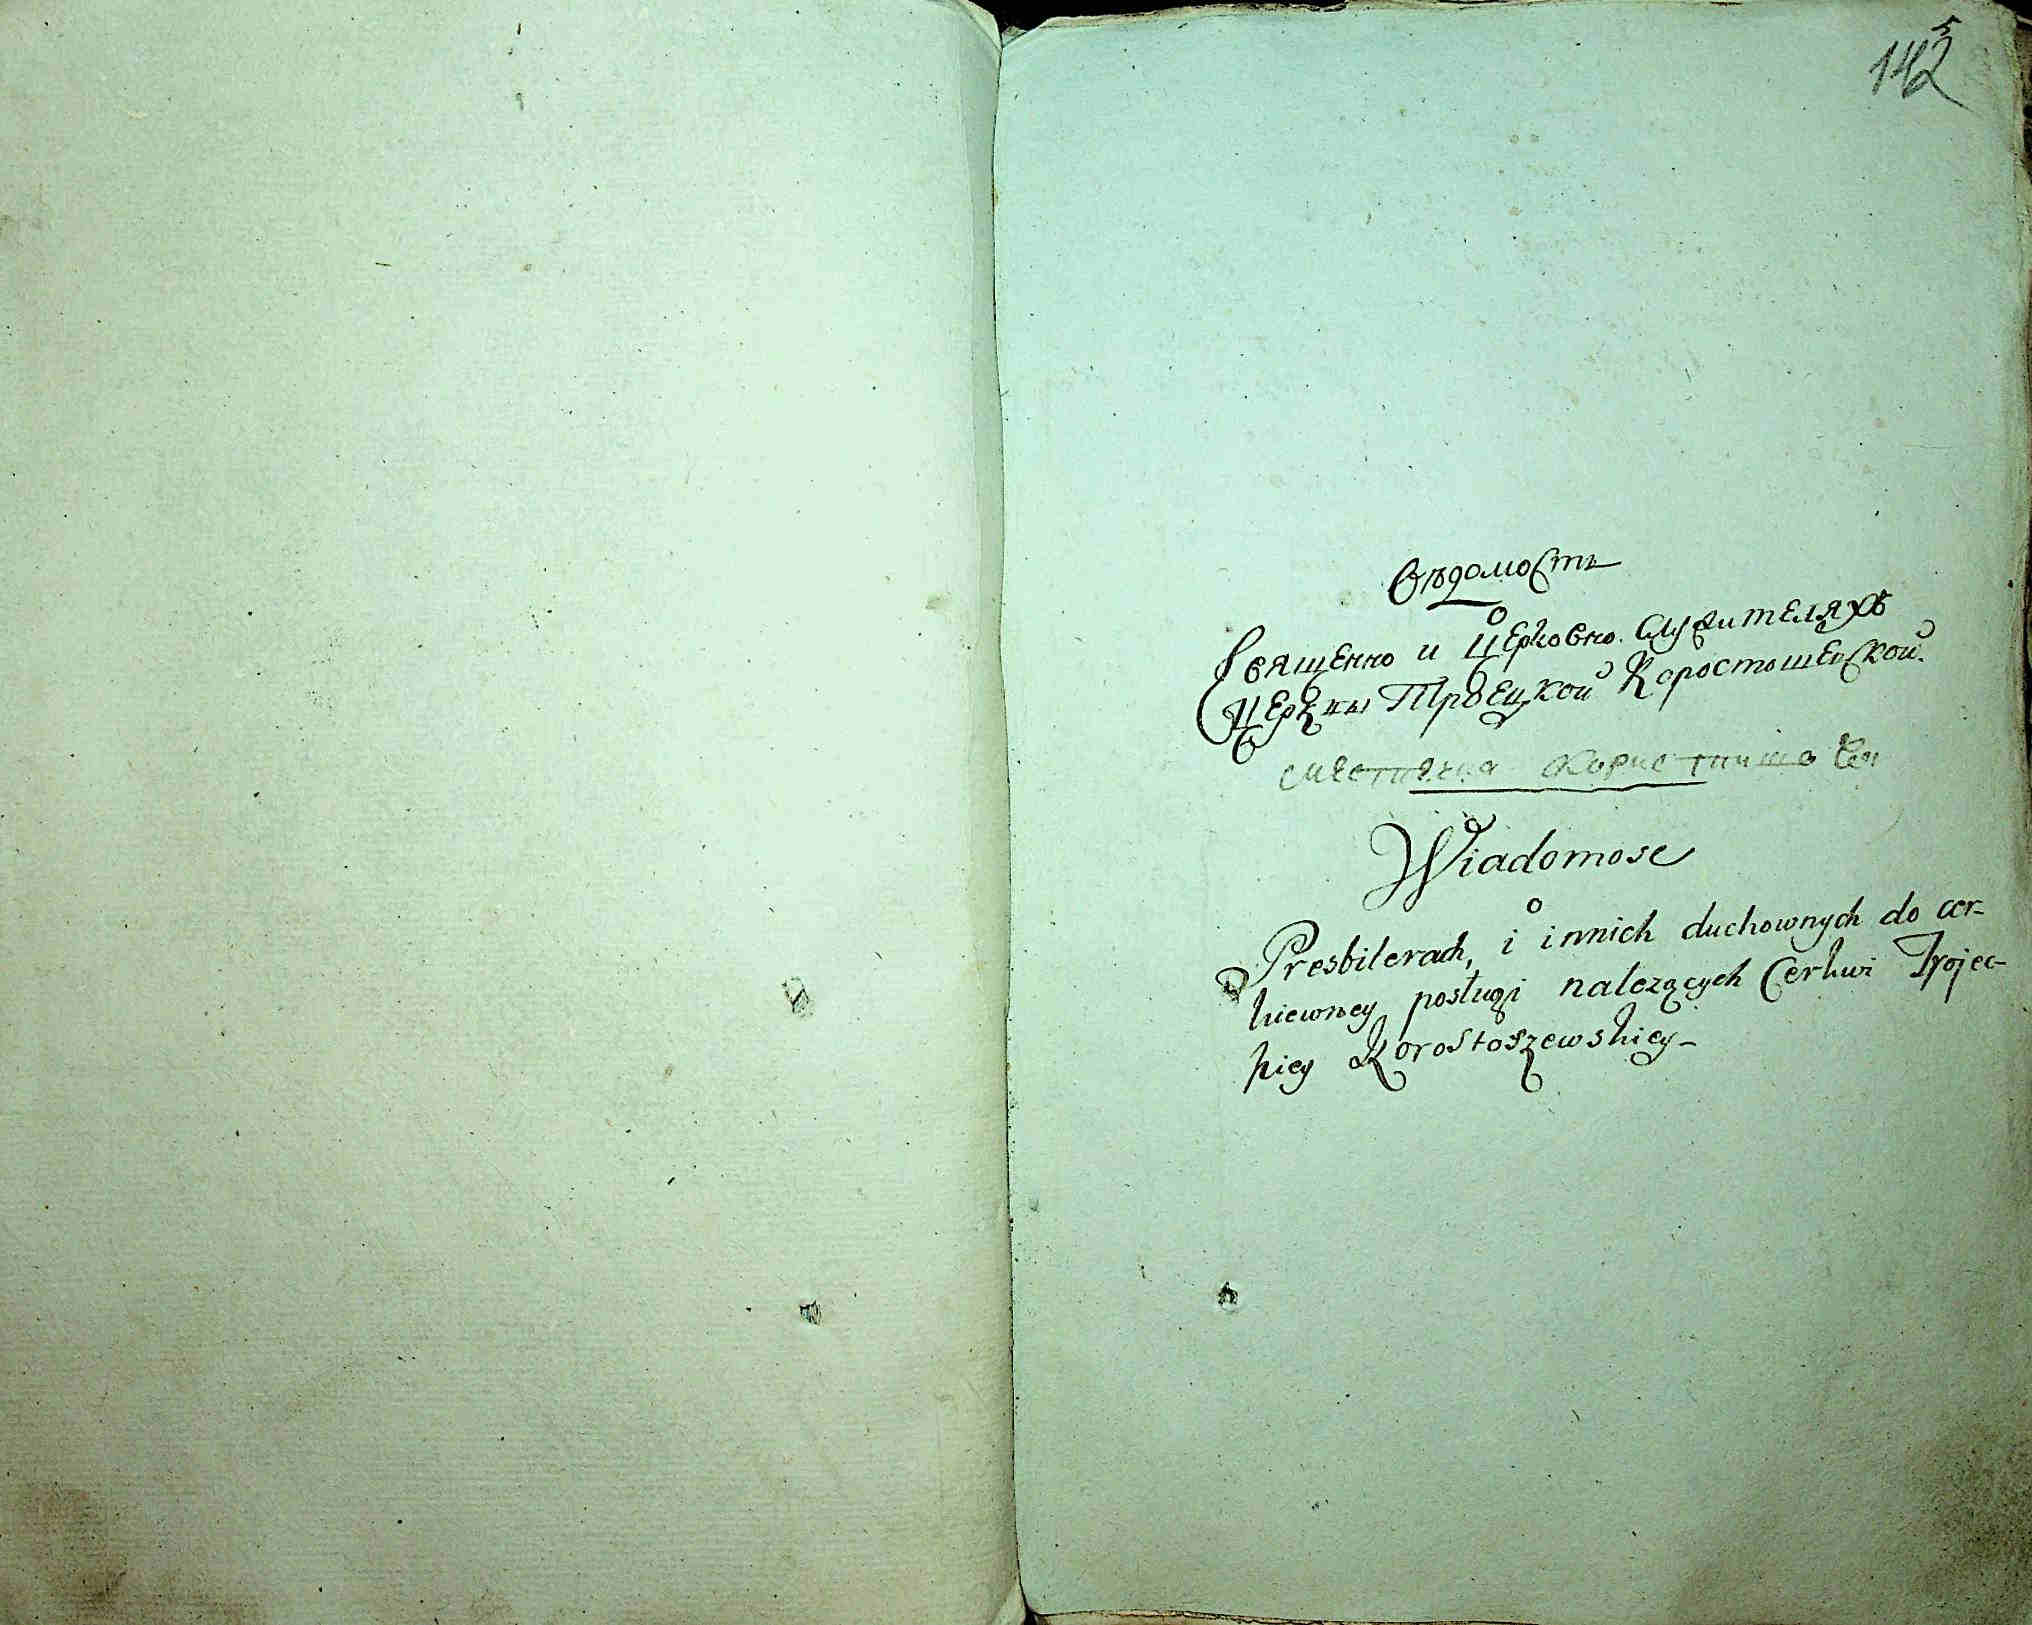 142
5
Вѣдомость
о
Священно и Церковно служителяхъ
Церкви Троецкой Каростошевской.
местечка
Wiadomosc
o
Presbiterach, i innich duchownych do cer-
kiewney posługi nalezących Cerkwi Trojec-
kiey Korostoszewskiey-